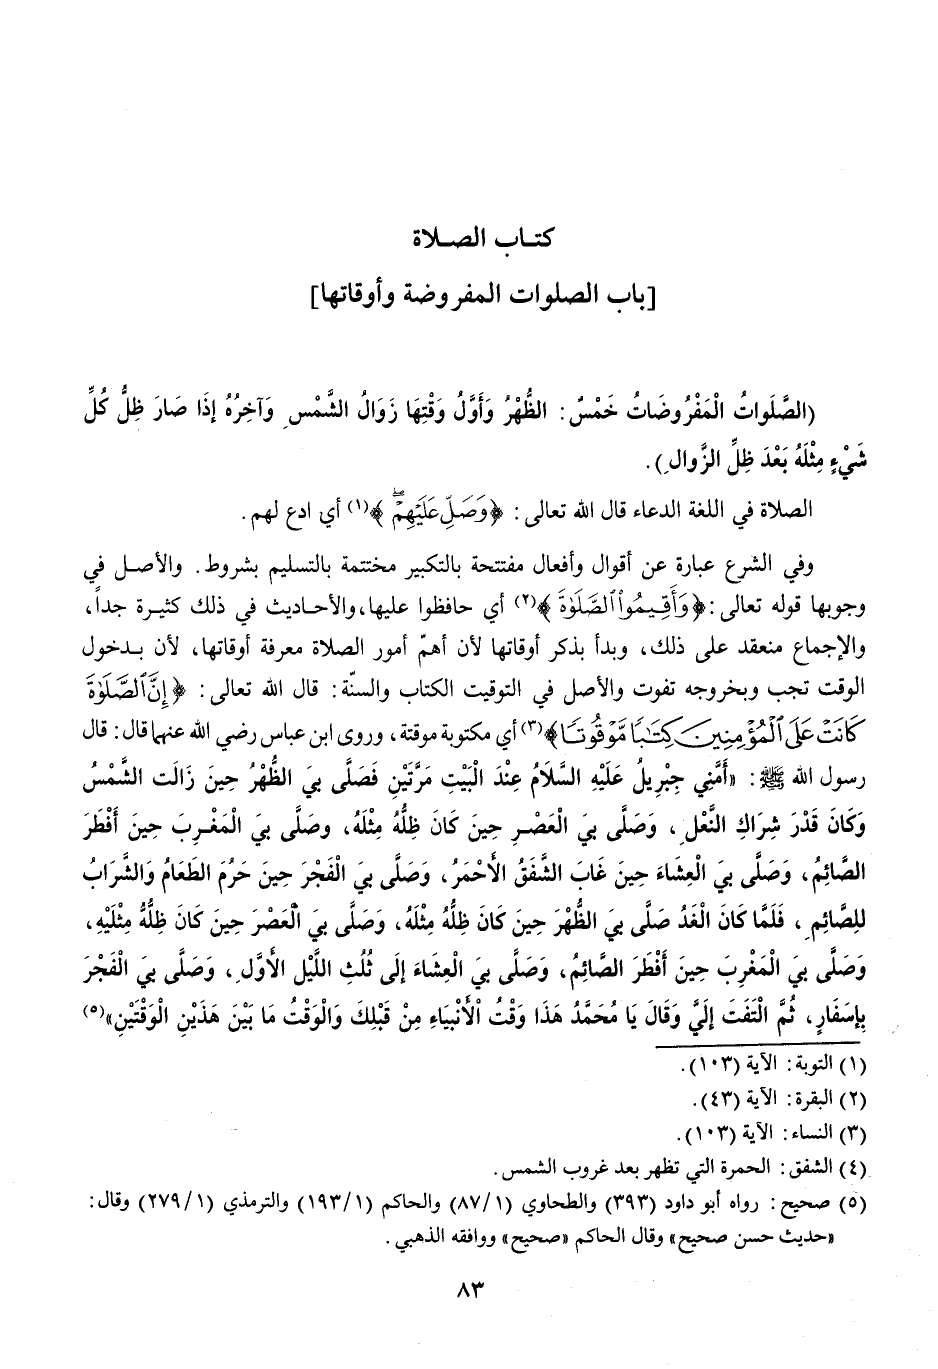 كتـاب الصـلاة
[باب الصلوات المفروضة وأوقاتها]
(الصَّلَواتُ الْمَفْرُوضَاتُ خَمْسٌ: الظُّهْرُ وَأَوَّلُ وَقْتِهَا زَوَالُ الشَّمْسِ وَآخِرُهُ إذَا صَارَ ظِلُّ كُلِّ
شَيْءٍ مِثْلَهُ بَعْدَ ظِلِّ الزَّوالِ).
الصلاة في اللغة الدعاء قال الله تعالى: ﴿وَصَلِّ عَلَيْهِمْ ۖ﴾(١) أي ادع لهم.
وفي الشرع عبارة عن أقوال وأفعال مفتتحة بالتكبير مختتمة بالتسليم بشروط. والأصل في
وجوبها قوله تعالى: ﴿وَأَقِيمُوا۟ ٱلصَّلَوٰةَ﴾(٢) أي حافظوا عليها، والأحاديث في ذلك كثيرة جداً،
والإجماع منعقد على ذلك، وبدأ بذكر أوقاتها لأن أهمّ أمور الصلاة معرفة أوقاتها، لأن بـدخول
الوقت تجب وبخروجه تفوت والأصل في التوقيت الكتاب والسنّة: قال الله تعالى: ﴿إِنَّ ٱلصَّلَوٰةَ
كَانَتْ عَلَى ٱلْمُؤْمِنِينَ كِتَـٰبًا مَّوْقُوتًا﴾(٣) أي مكتوبة موقتة، وروى ابن عباس رضي الله عنهما قال: قال
رسول الله ﷺ: «أَمَّنِي جِبْرِيلُ عَلَيْهِ السَّلَامُ عِنْدَ الْبَيْتِ مَرَّتَيْنِ فَصَلَّى بِيَ الظُّهْرُ حِينَ زَالَت الشَّمْسُ
وَكَانَ قَدْرَ شِرَاكِ النَّعْلِ، وَصَلَّى بِيَ الْعَصْرِ حِينَ كَانَ ظِلُّهُ مِثْلَهُ، وصَلَّى بِيَ الْمَغْرِبَ حِينَ أَفْطَرَ
الصَّائِمُ، وَصَلَّى بِيَ الْعِشَاءَ حِينَ غَابَ الشَّفَقُ الأَحْمَرُ، وَصَلَّى بِيَ الْفَجْرَ حِينَ حَرُمَ الطَعَامُ وَالشَّرَابُ
لِلصَّائِمِ، فَلَمَّا كَانَ الْغَدُ صَلَّى بِيَ الظُّهْرَ حِينَ كَانَ ظِلُّهُ مِثْلَهُ، وَصَلَّى بِيَ الْعَصْرَ حِينَ كَانَ ظِلُّهُ مِثْلَيْهِ،
وَصَلَّى بِيَ الْمَغْرِبَ حِينَ أَفْطَرَ الصَّائِمُ، وَصَلَّى بِيَ الْعِشَاءَ إلَى ثُلُثِ اللَّيْلِ الأَوَّلِ، وَصَلَّى بِيَ الْفَجْرَ
بِإسْفَارٍ، ثُمَّ الْتَفَتَ إلَيَّ وَقَالَ يَا مُحَمَّدُ هَذَا وَقْتُ الْأَنْبِيَاءِ مِنْ قَبْلِكَ وَالْوَقْتُ مَا بَيْنَ هَذَيْنِ الْوَقْتَيْنِ»(٥)
(١) التوبة: الآية (١٠٣).
(٢) البقرة: الآية (٤٣).
(٣) النساء: الآية (١٠٣).
(٤) الشفق: الحمرة التي تظهر بعد غروب الشمس.
(٥) صحيح: رواه أبو داود (٣٩٣) والطحاوي (٨٧/١) والحاكم (١٩٣/١) والترمذي (٢٧٩/١) وقال:
«حديث حسن صحيح» وقال الحاكم «صحيح» ووافقه الذهبي.
٨٣